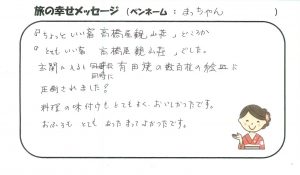 旅の幸せメッセージ (ペンネーム: まっちゃん )
『ちょっといい宿 高橋屋観山荘』どころか
『とってもいい宿 高橋屋観山荘』でした。
玄関に入ると同時に有田焼の数百枚の絵皿に
同時に
圧倒されました?
料理の味付けもとてもよく、おいしかったです。
おふろも とても あったまってよかったです。